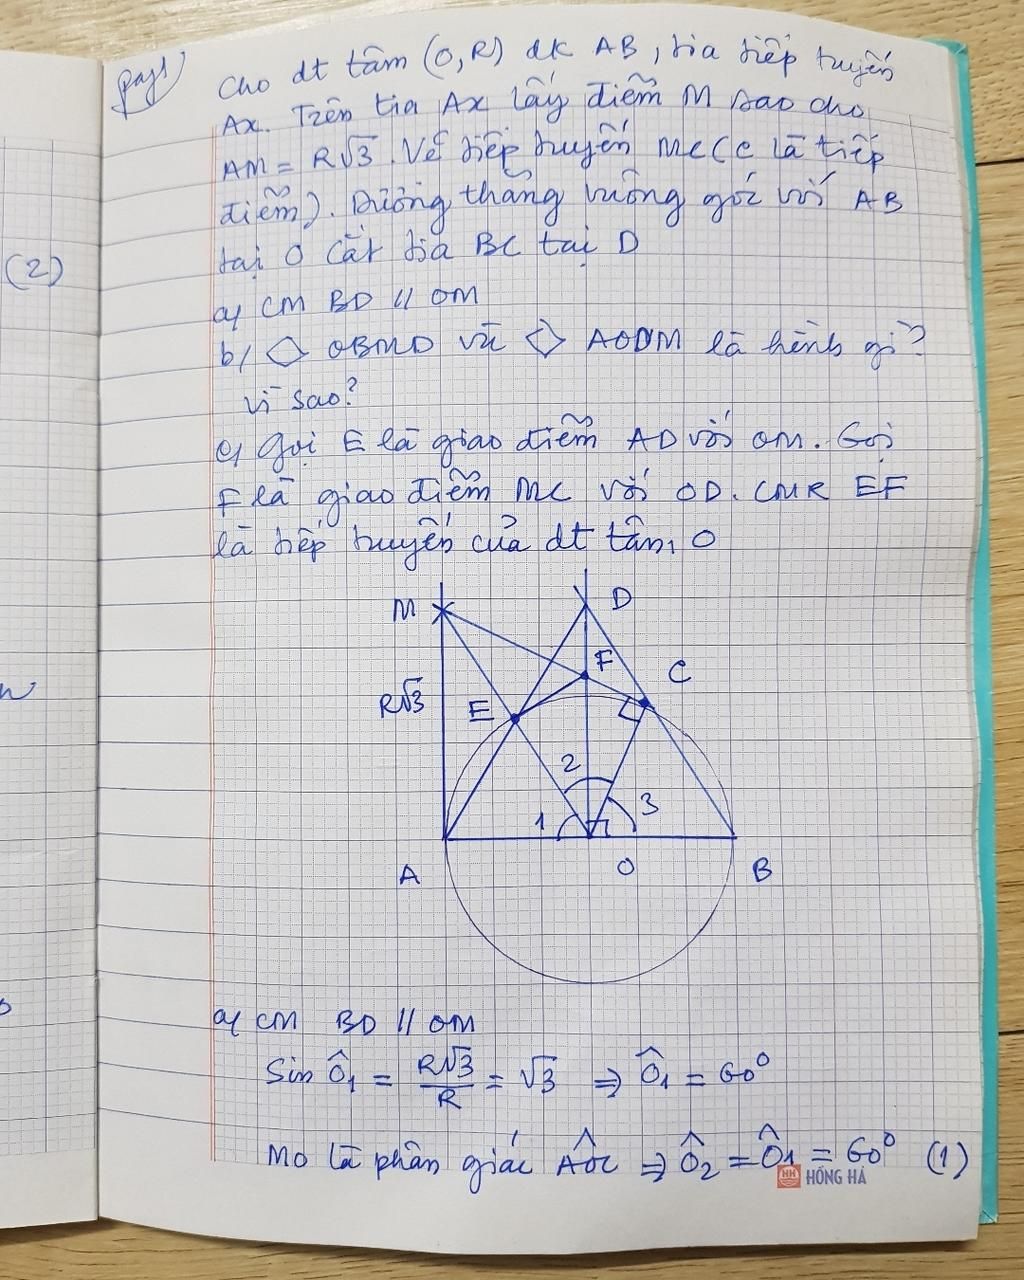 (2)
pay1
Cho dt tâm (O,R) đk AB, tia tiếp tuyến
Ax. Trên tia Ax lấy điểm M sao cho
AM = R√3. Vẽ tiếp tuyến MC (C là tiếp
điểm). Đường thẳng vuông góc với AB
tại O cắt tia BC tại D
a/ CM BD // OM
b/ ◇ OBMD và ◇ AODM là hình gì?
vì sao?
c/ Gọi E là giao điểm AD với OM. Gọi
F là giao điểm MC với OD. CMR EF
là tiếp tuyến của dt tâm O
M D
F C
R√3 E
2
1 3
A O B
a/ CM BD // OM
Sin Ô₁ = R√3/R = √3 ⇒ Ô₁ = 60°
MO là phân giác AÔC ⇒ Ô₂ = Ô₁ = 60° (1)
HH HỒNG HÀ